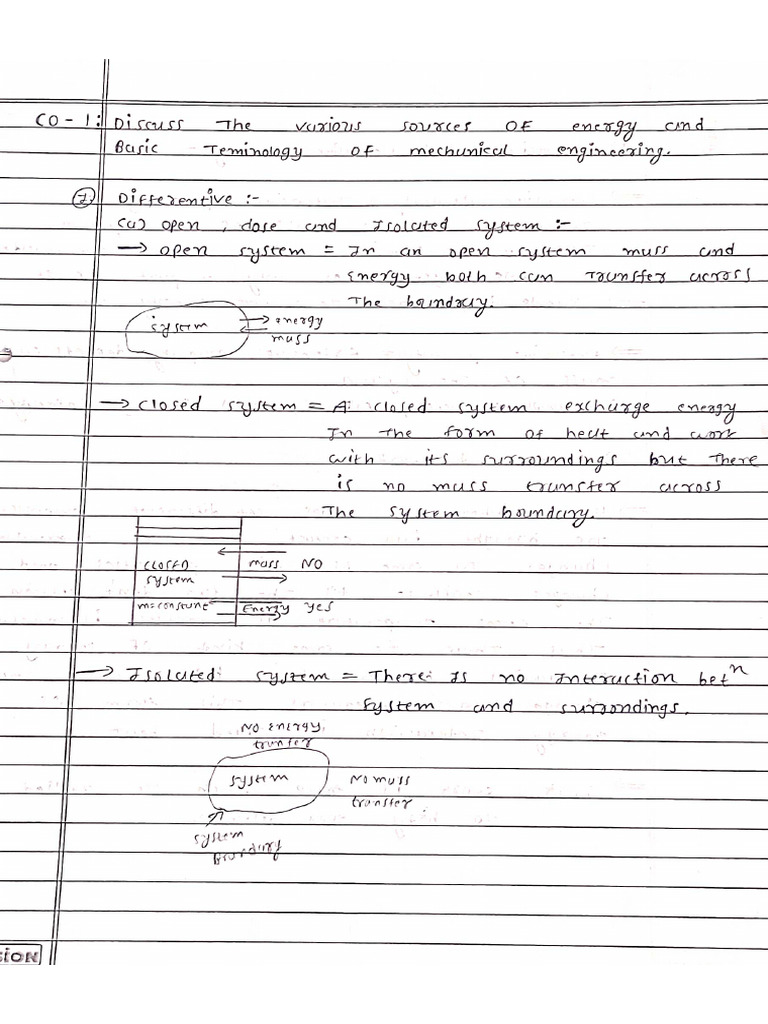 CO-1: Discuss The various sources OF energy and
Basic Teminology of mechanical engineering.
1. Differentive :-
(a) open, close and Isolated system :-
→ open system = In an open system mass and
Energy both can Transfer across
The boundray.
system → energy
← mass
→ closed system = A closed system exchurge energy
In the form of heat and work
with its surroundings but There
is no mass transfer across
The system boundary.
CLOSED mass NO
system
m=constant Energy yes
→ Isolated system = There Is no Interaction betn
system and surrondings.
NO Energy
tranfer
system No mass
transfer
system
SION